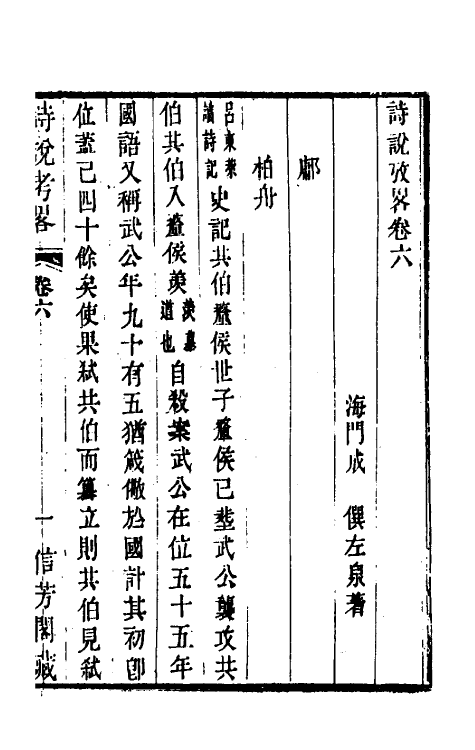 詩說攷畧卷六
海門成 僎左泉著
鄘
柏舟
呂東萊
讀詩記
史記共伯釐侯世子釐侯已塟武公襲攻共
伯共伯入釐侯羨
羨墓
道也
自殺案武公在位五十五年
國語又稱武公年九十有五猶箴儆於國計其初卽
位蓋已四十餘矣使果弒共伯而簒立則共伯見弒
詩說考畧
卷六
一
信芳閣藏